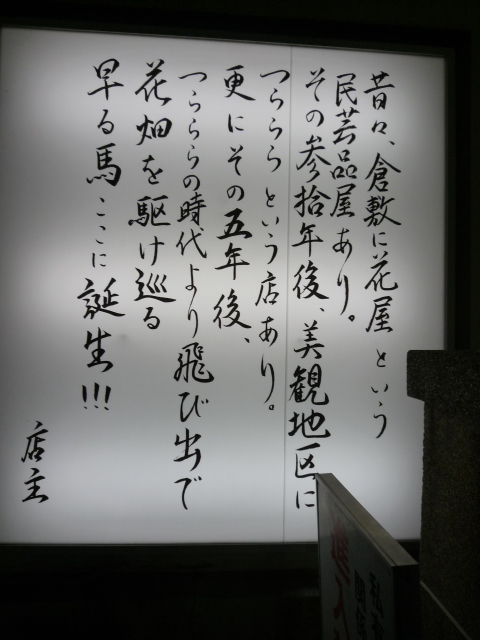 昔々、倉敷に花屋という
民芸品屋あり。
その参拾年後、美観地区に
つららら という店あり。
更にその五年後、
つらららの時代より飛び出で
花畑を駆け巡る
早る馬ここに誕生!!!
店主